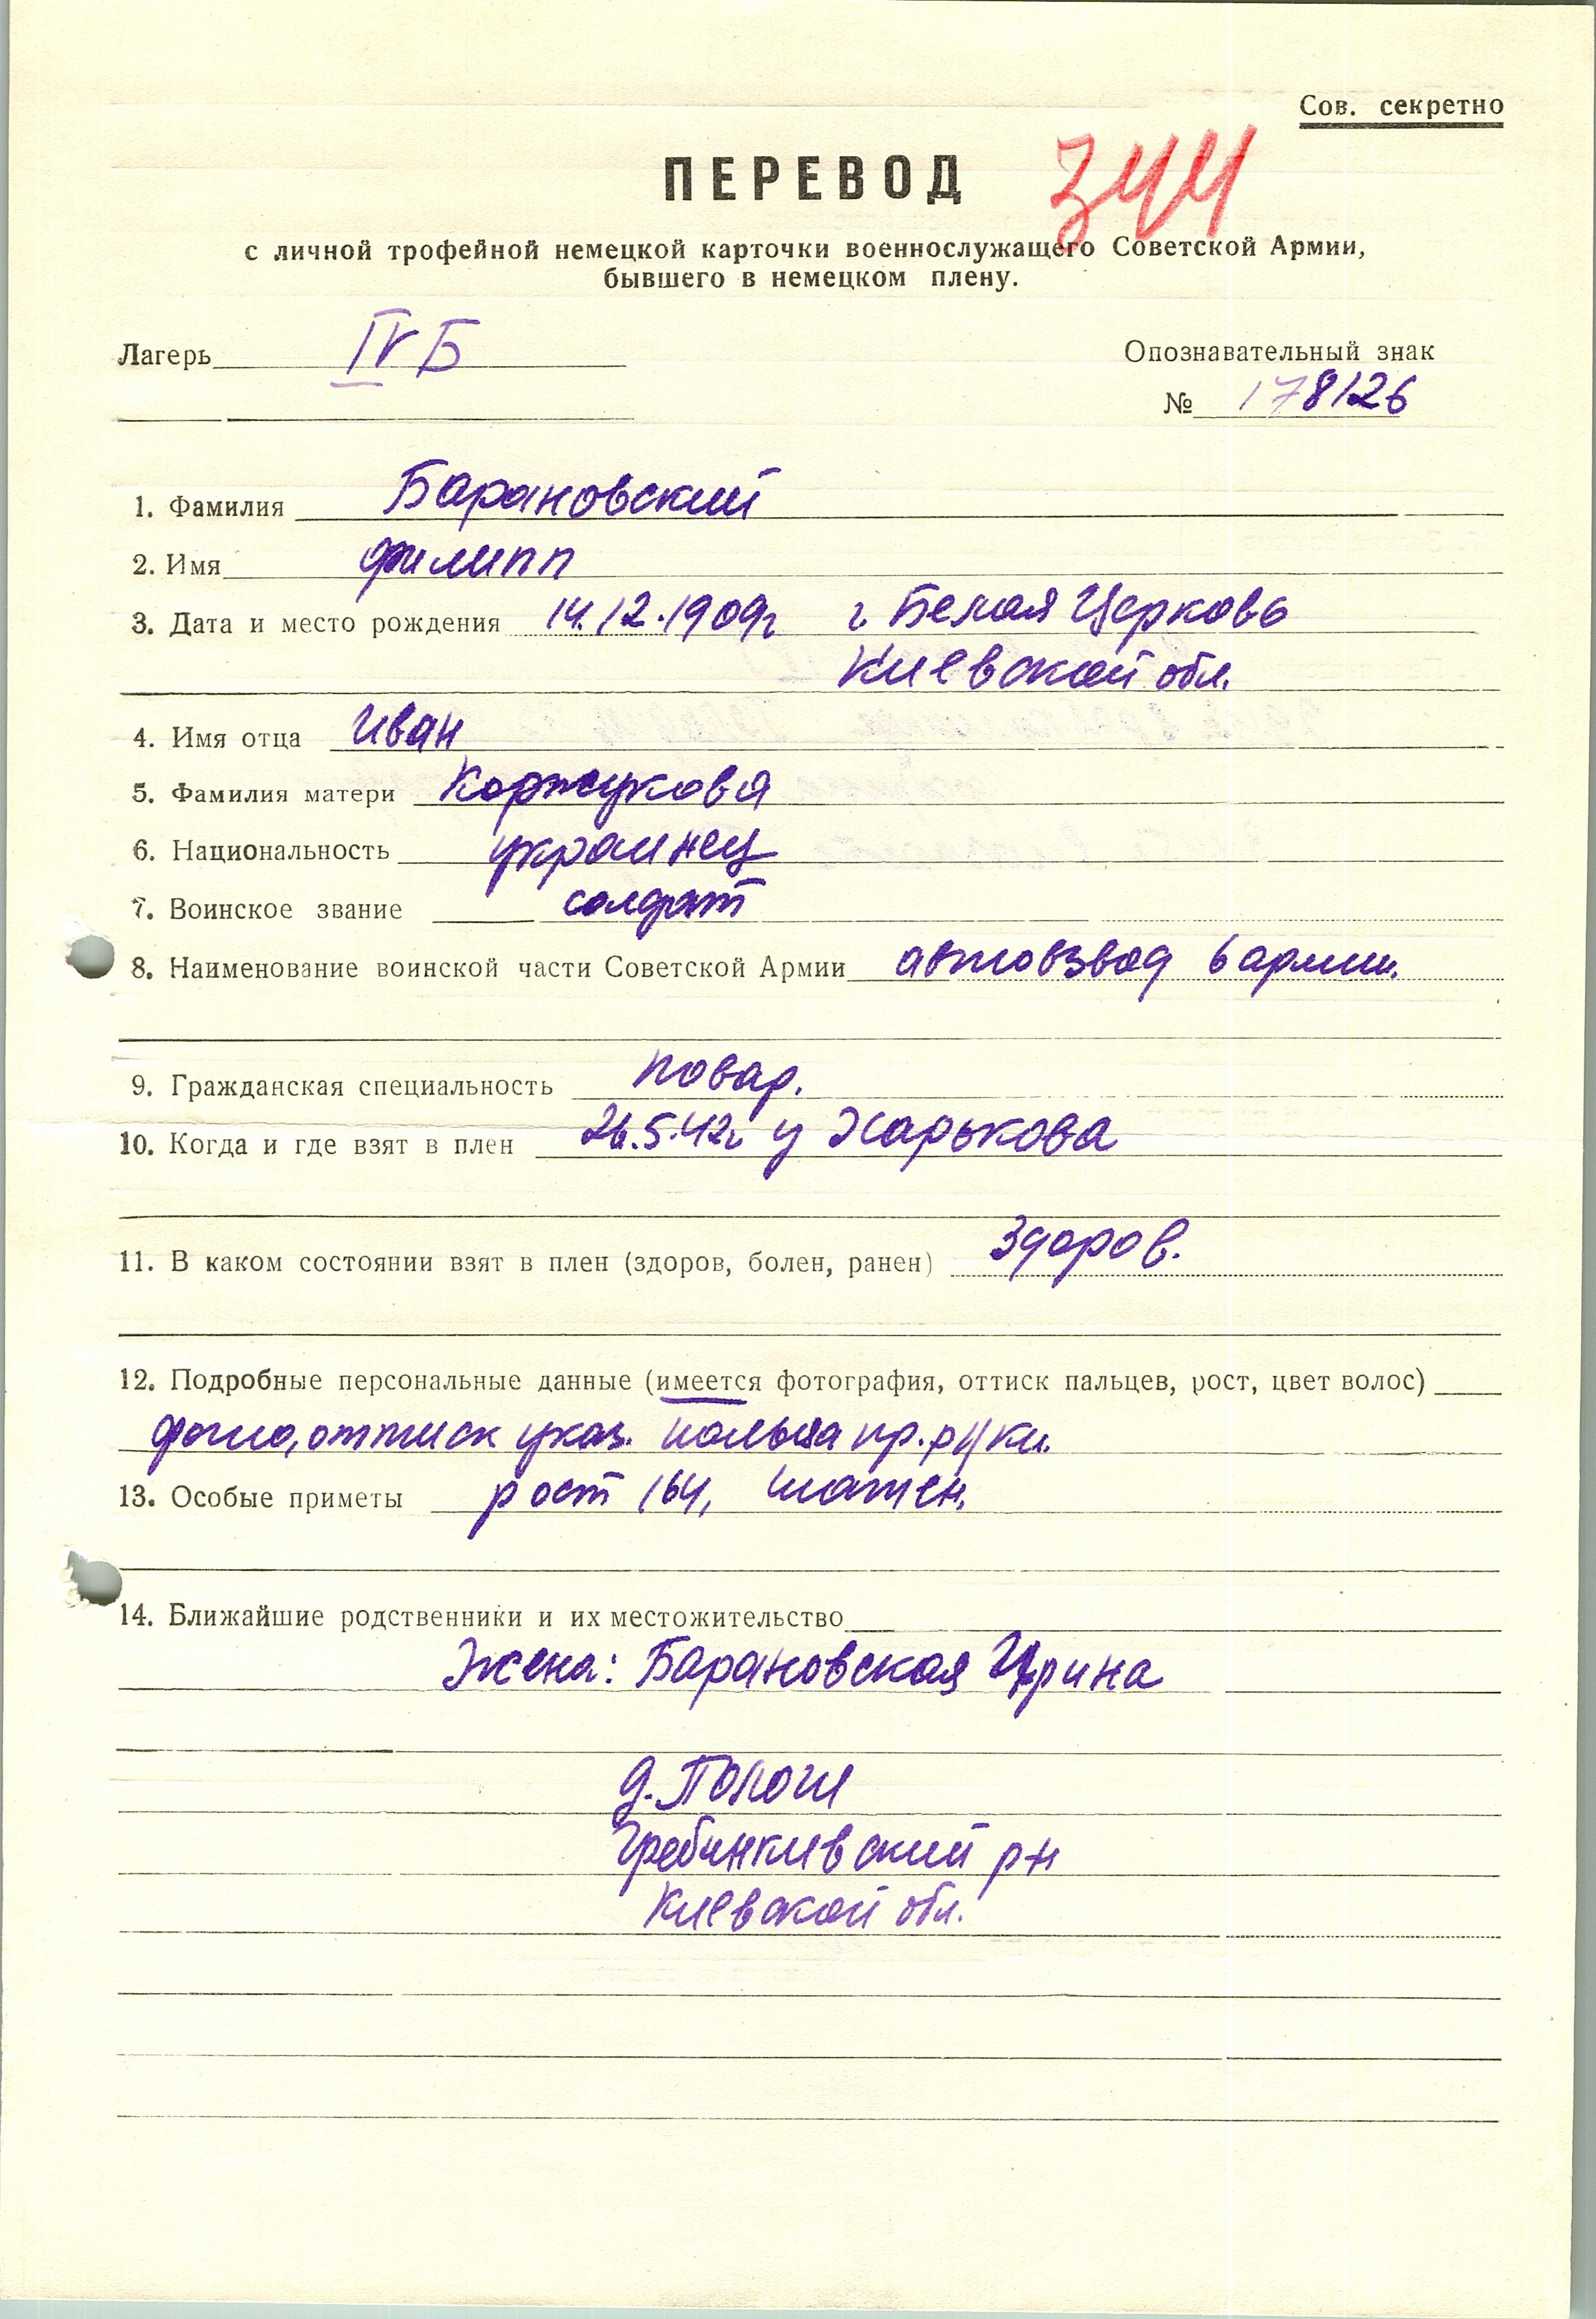 Сов. секретно
ПЕРЕВОД 344
с личной трофейной немецкой карточки военнослужащего Советской Армии,
бывшего в немецком плену.
Лагерь IV Б
Опознавательный знак
№ 178126
1. Фамилия Барановский
2. Имя Филипп
3. Дата и место рождения 14.12.1909г г. Белая Церковь
Киевской обл.
4. Имя отца Иван
5. Фамилия матери Коржукова
6. Национальность украинец
7. Воинское звание солдат
8. Наименование воинской части Советской Армии автовзвод 6 армии.
9. Гражданская специальность повар.
10. Когда и где взят в плен 26.5.42г. у Харькова
11. В каком состоянии взят в плен (здоров, болен, ранен) Здоров.
12. Подробные персональные данные (имеется фотография, оттиск пальцев, рост, цвет волос)
фото, оттиск указ. пальца пр. руки.
13. Особые приметы рост 164, шатен.
14. Ближайшие родственники и их местожительство
Жена: Барановская Ирина
д. Пологи
Гребинкивский р-н
Киевской обл.